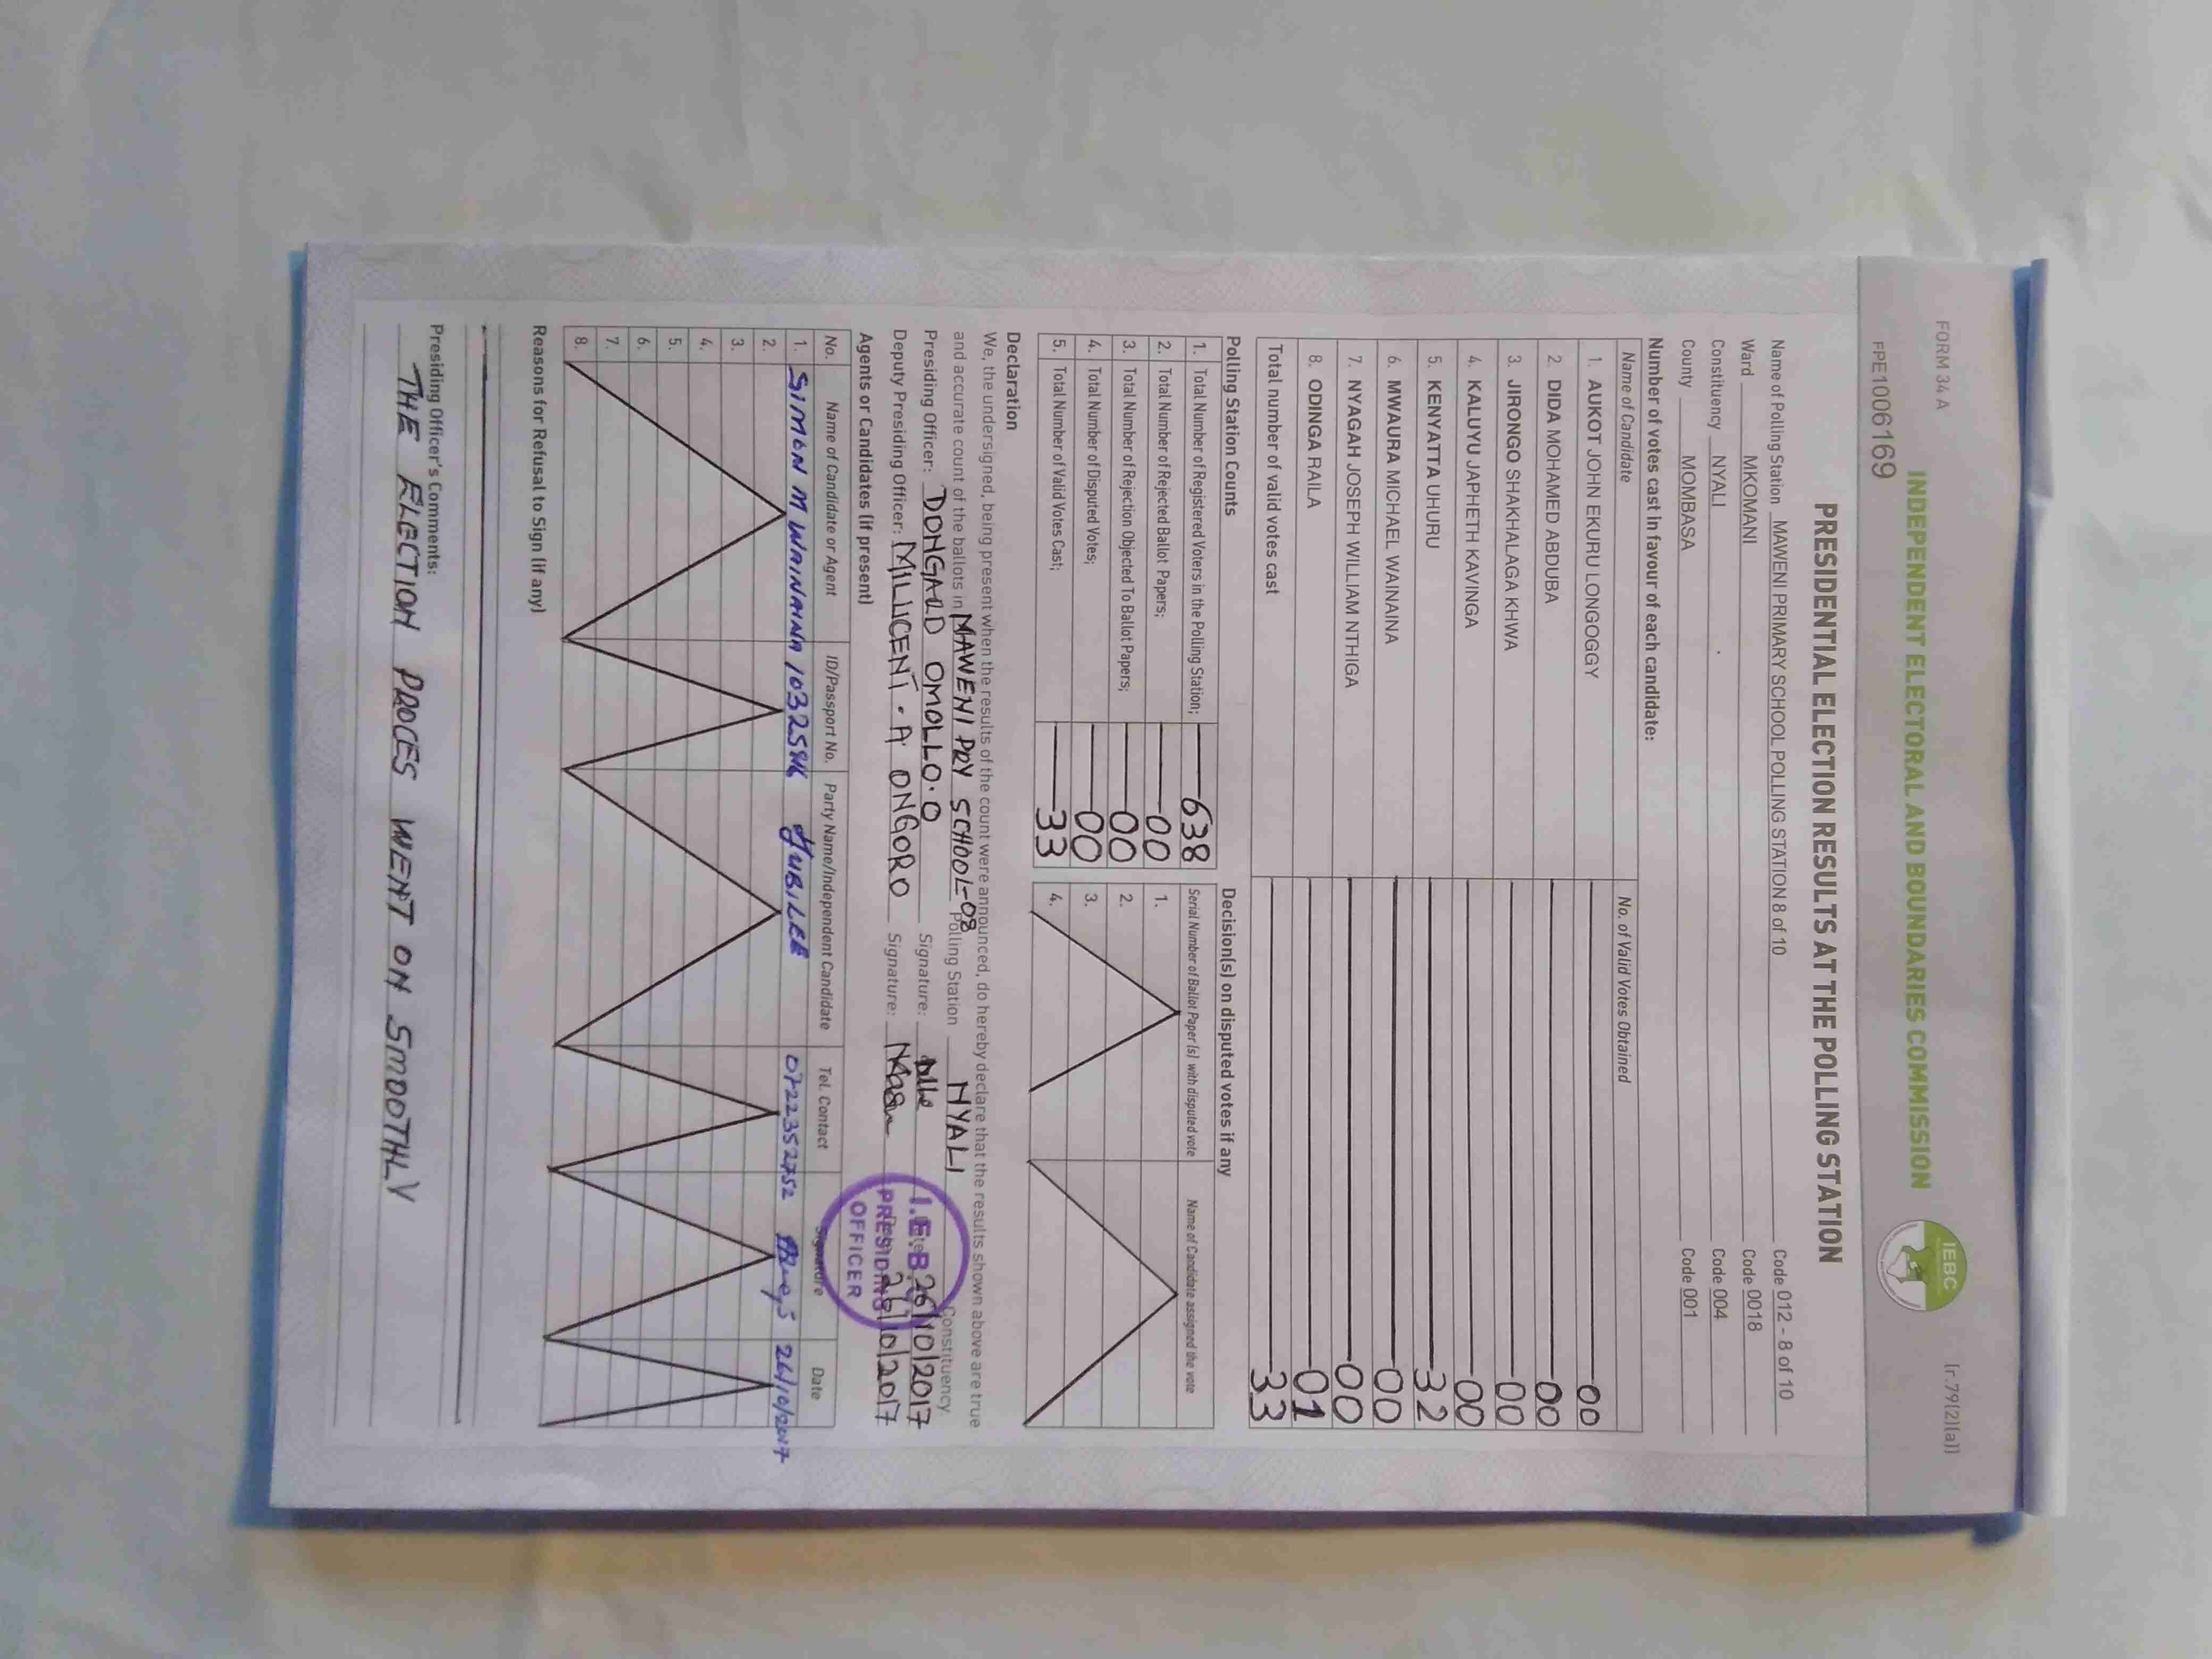 FORM 34 A
(r.79(2)(a))
INDEPENDENT ELECTORAL AND BOUNDARIES COMMISSION
IEBC
FPE1006169
PRESIDENTIAL ELECTION RESULTS AT THE POLLING STATION
Name of Polling Station MAWENI PRIMARY SCHOOL POLLING STATION 8 of 10 Code 012 - 8 of 10
Ward MKOMANI Code 0018
Constituency NYALI Code 004
County MOMBASA Code 001
Number of votes cast in favour of each candidate:
Name of Candidate No. of Valid Votes Obtained
1. AUKOT JOHN EKURU LONGOGGY 00
2. DIDA MOHAMED ABDUBA 00
3. JIRONGO SHAKHALAGA KHWA 00
4. KALUYU JAPHETH KAVINGA 00
5. KENYATTA UHURU 32
6. MWAURA MICHAEL WAINAINA 00
7. NYAGAH JOSEPH WILLIAM NTHIGA 00
8. ODINGA RAILA 01
Total number of valid votes cast 33
Polling Station Counts
1. Total Number of Registered Voters in the Polling Station; 638
2. Total Number of Rejected Ballot Papers; 00
3. Total Number of Rejection Objected To Ballot Papers; 00
4. Total Number of Disputed Votes; 00
5. Total Number of Valid Votes Cast; 33
Decision(s) on disputed votes if any
Serial Number of Ballot Paper (s) with disputed vote Name of Candidate assigned the vote
1.
2.
3.
4.
Declaration
We, the undersigned, being present when the results of the count were announced, do hereby declare that the results shown above are true
and accurate count of the ballots in MAWENI PRY SCHOOL-08 Polling Station NYALI Constituency
Presiding Officer: DONGARD OMOLLO.O Signature: Date 26/10/2017
Deputy Presiding Officer: MILLICENT. A ONGORO Signature: 26/10/2017
I.E.B.C
PRESIDING
OFFICER
Agents or Candidates (if present)
No. Name of Candidate or Agent ID/Passport No. Party Name/Independent Candidate Tel. Contact Signature Date
1. SIMON M WAINAINA JUBILEE 0722352752 26/10/2017
2.
3.
4.
5.
6.
7.
8.
Reasons for Refusal to Sign (if any)
Presiding Officer's Comments:
THE ELECTION PROCES WENT ON SMOOTHLY